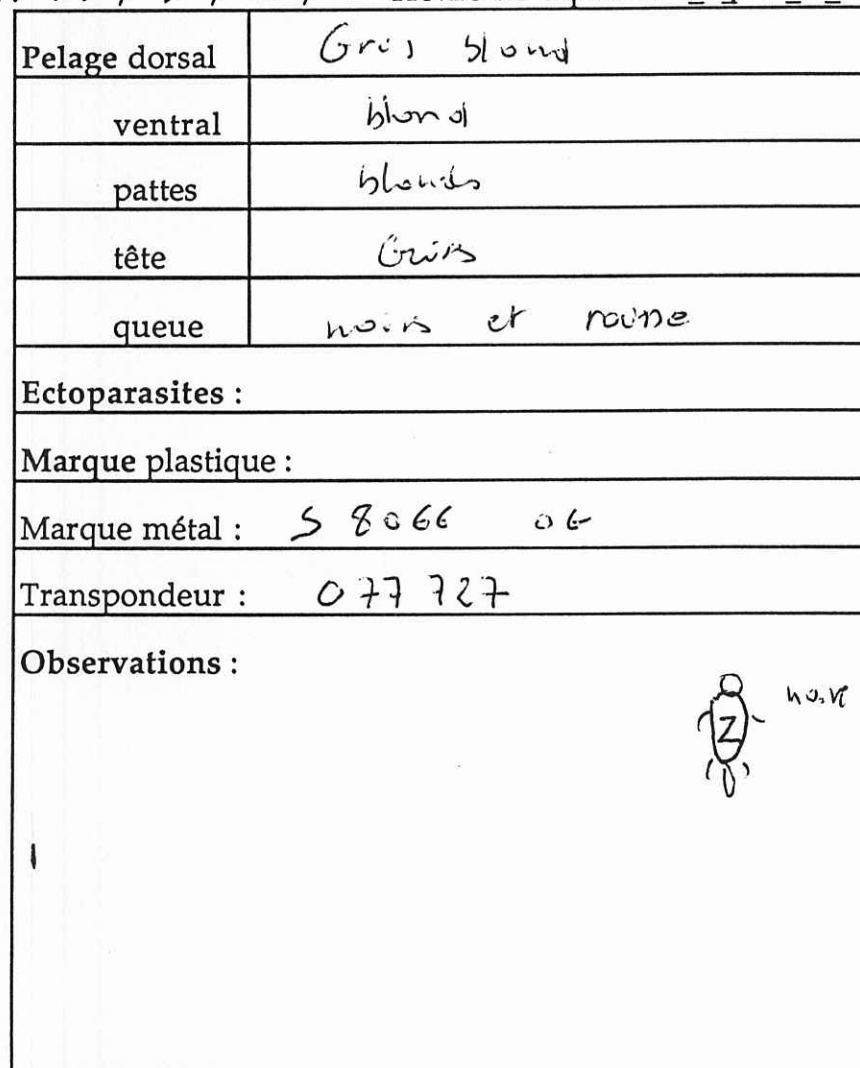 Pelage dorsal Gris blond
ventral blond
pattes blonds
tête Gris
queue noirs et
Ectoparasites :
Marque plastique :
Marque métal : S 8066 OG
Transpondeur : 077 727
Observations :
Z noir